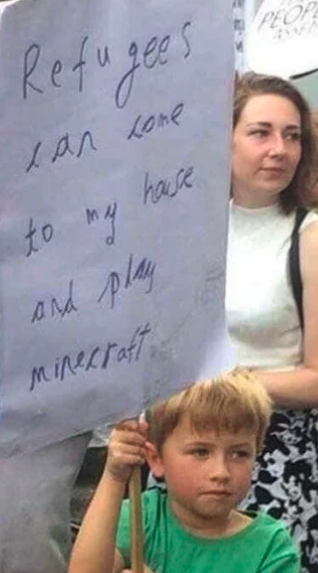 Refugees
can come
to my house
and play
minecraft
PEOPLE